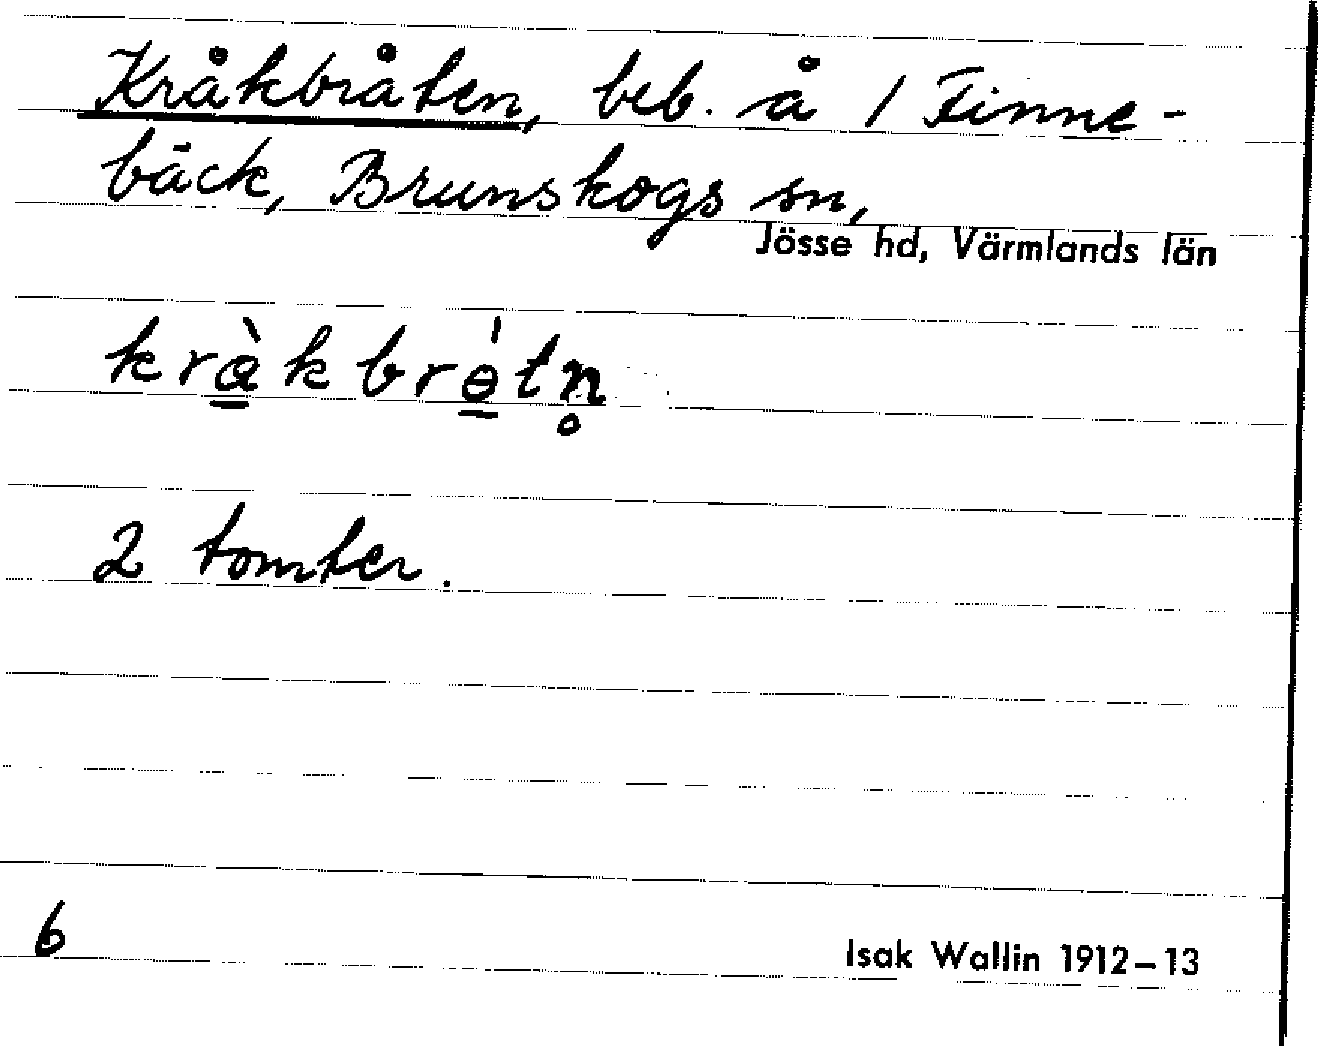 Kråkbråten, beb. å 1 Finne-
bäck, Brunskogs sn,
Jösse hd, Värmlands län
krå̀kbrǿtn̥
2 tomter.
6
Isak Wallin 1912–13